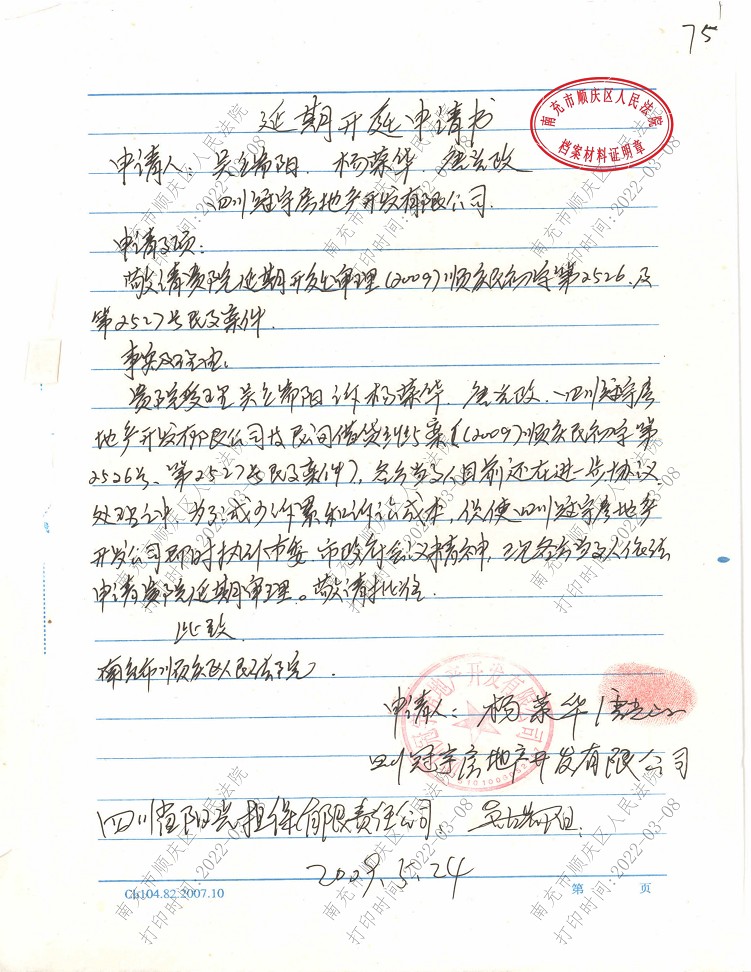 75
延期开庭申请书
南充市顺庆区人民法院
档案材料证明章
申请人：吴 阳、杨荣华、
四川冠宇房地产开发有限公司.
申请事项：
敬请贵院延期开庭审理(2009)顺庆民初字第2526、及
第2527号民事案件.
事实及理由：
贵院受理吴 阳诉杨荣华、 、四川冠宇房
地产开发有限公司 民间借贷纠纷案(2009)顺庆民初字第
2526号、第2527号民事案件)，各方当事人目前还在进一步协议
处理之中，为了减少诉累和诉讼成本，促使四川冠宇房地产
开发公司即时执行市委、市政府会议精神，现各方当事人依法
申请贵院延期审理。敬请批准.
此致
南充市顺庆区人民法院
申请人：杨荣华
四川冠宇房地产开发有限公司
四川省阳光担保有限责任公司
2009.5.24
Ch104.82.2007.10
第 页
南充市顺庆区人民法院
打印时间:2022-03-08